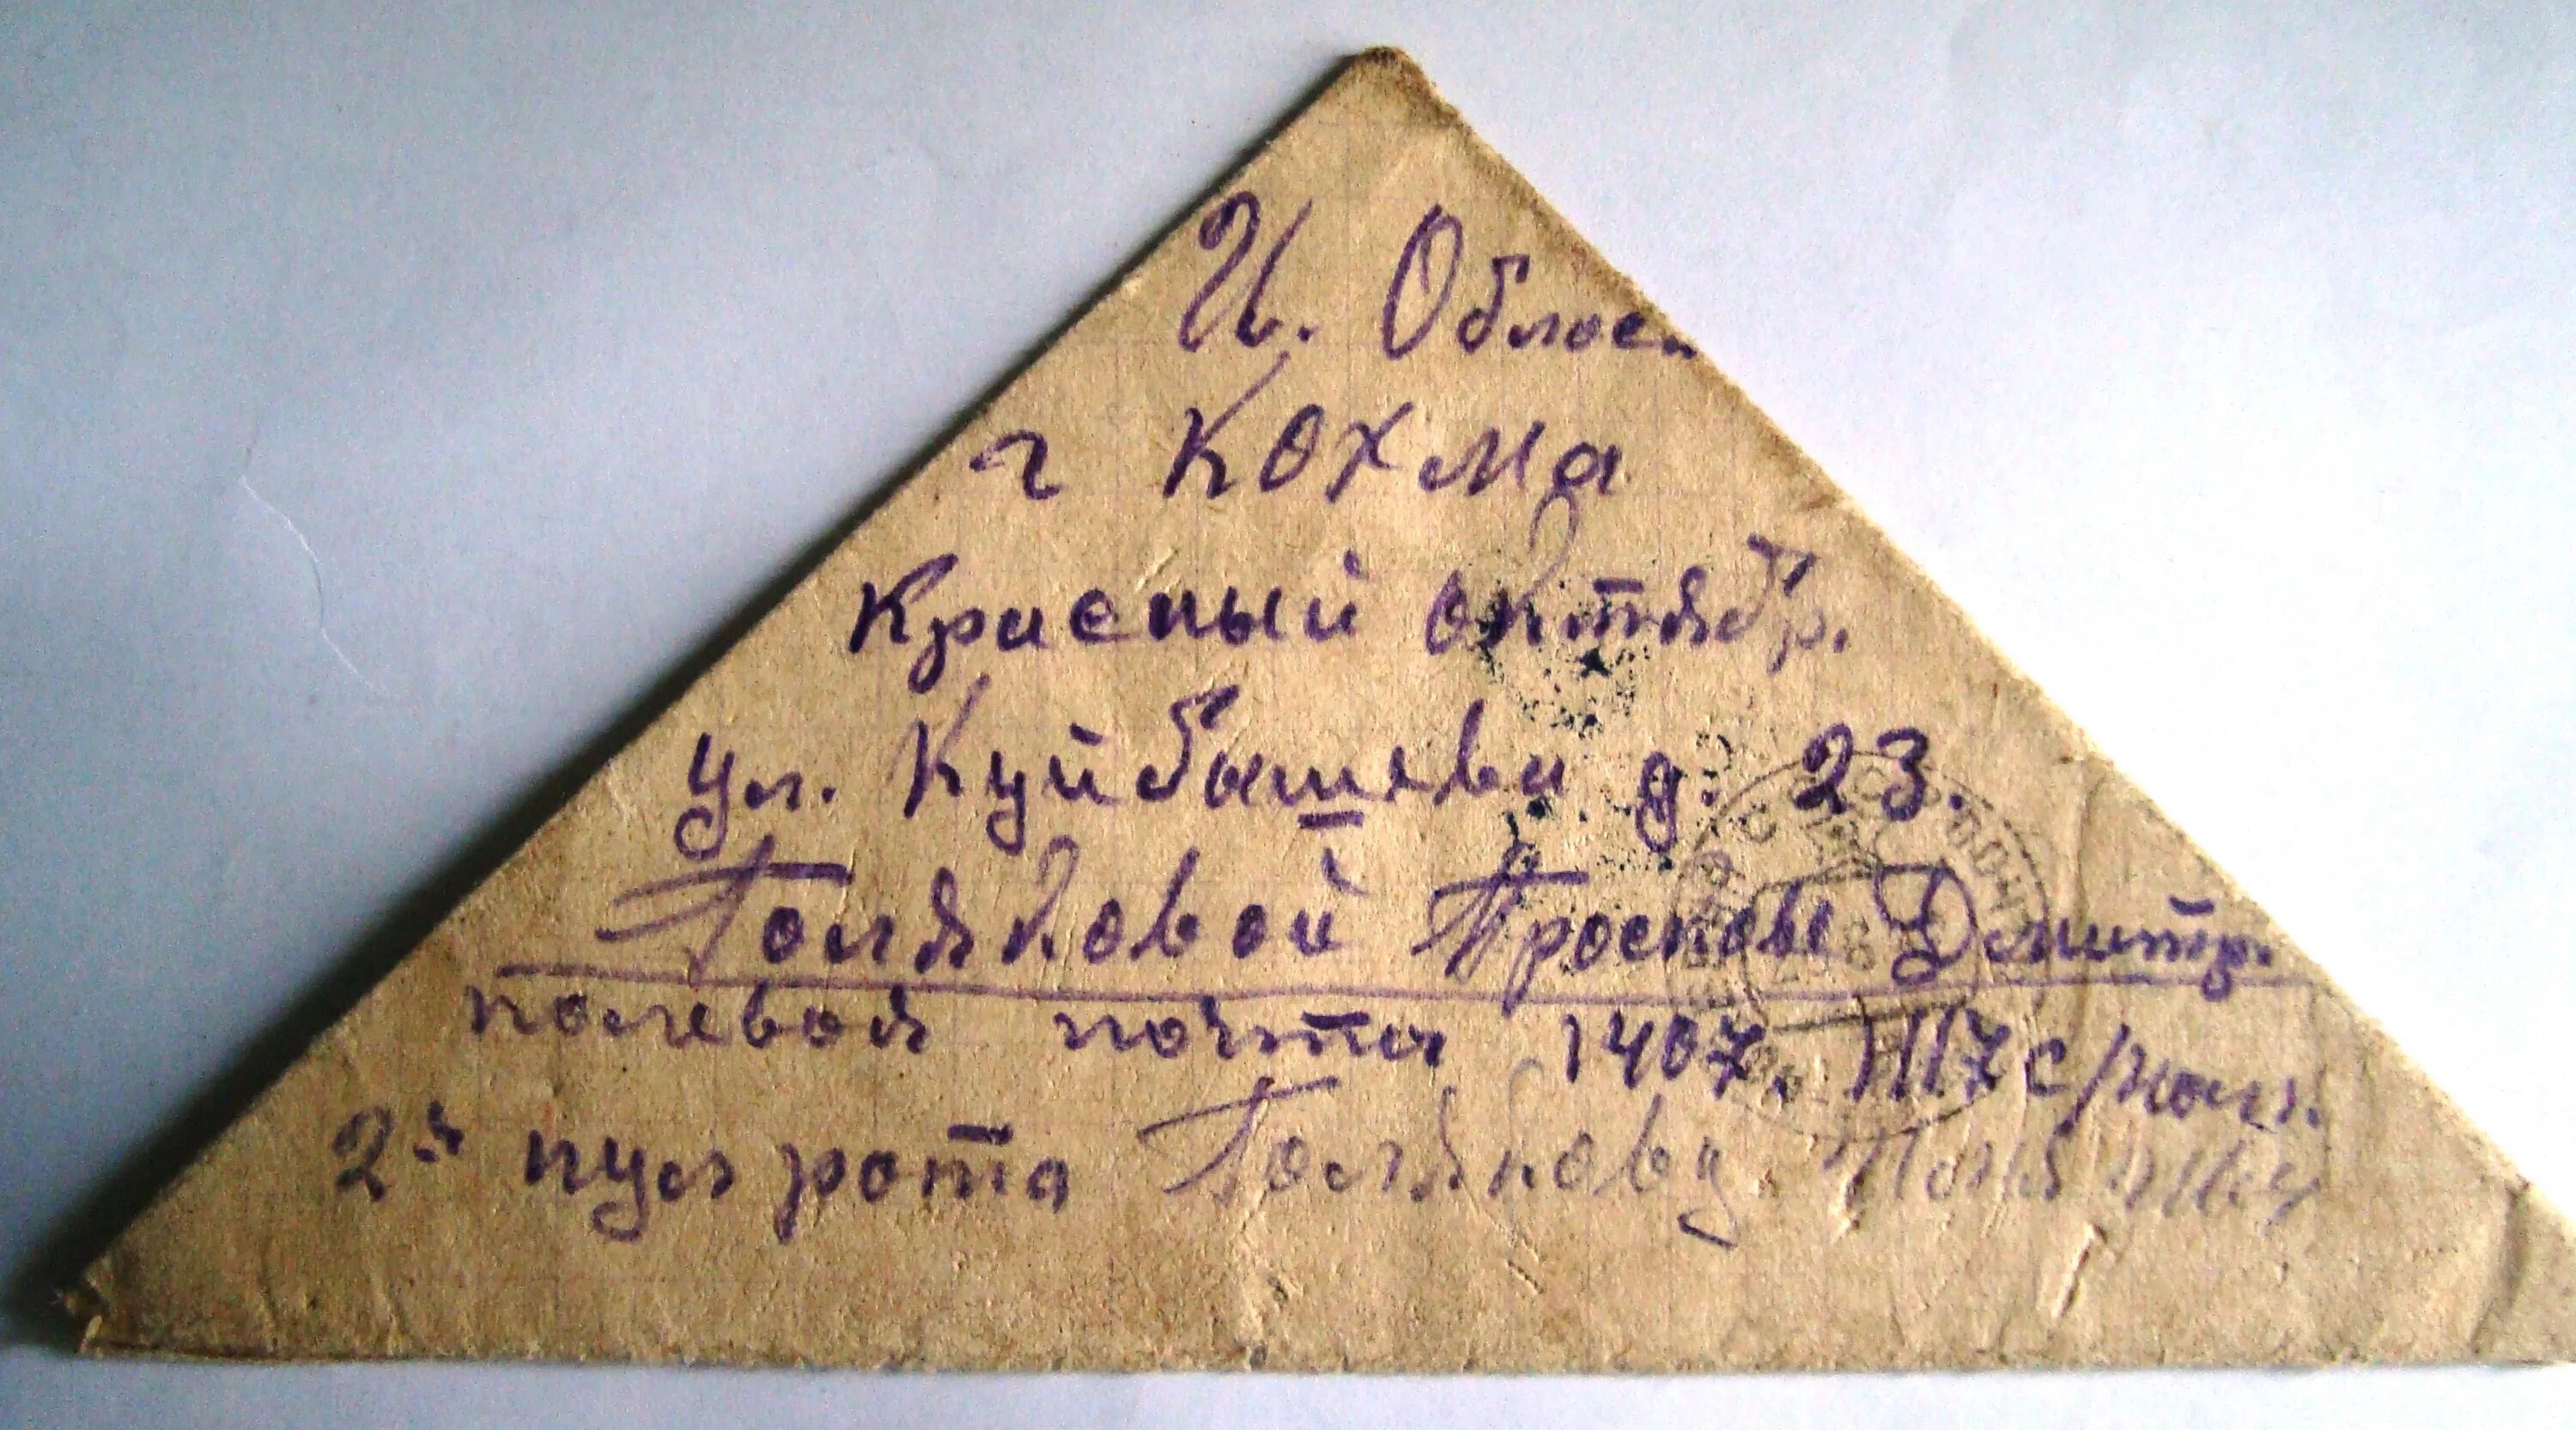 И. Облас.
г Кохма
Красный октябр.
ул. Куйбышева д. 23.
Поляковой Просковье Дмитр.
полевоя почта 1407. 1117 с/пол.
2я пул рота Полякову